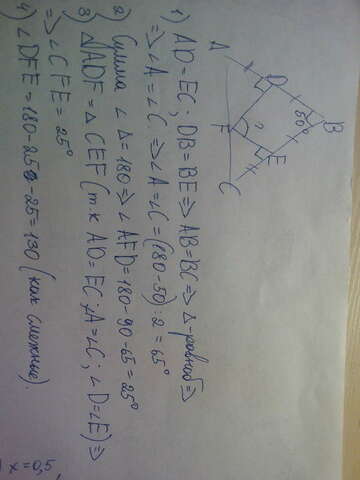 A
D
B
50°
F
?
E
C
1) AD=EC; DB=BE => AB=BC => Δ-равноб =>
=> ∠A=∠C. => ∠A=∠C=(180-50):2=65°
2) Сумма ∠ Δ=180 => ∠AFD=180-90-65=25°
3) ΔADF=ΔCEF (т.к AD=EC; ∠A=∠C; ∠D=∠E) =>
=> ∠CFE=25°
4) ∠DFE=180-25-25=130 (как смежные).
x=0,5,